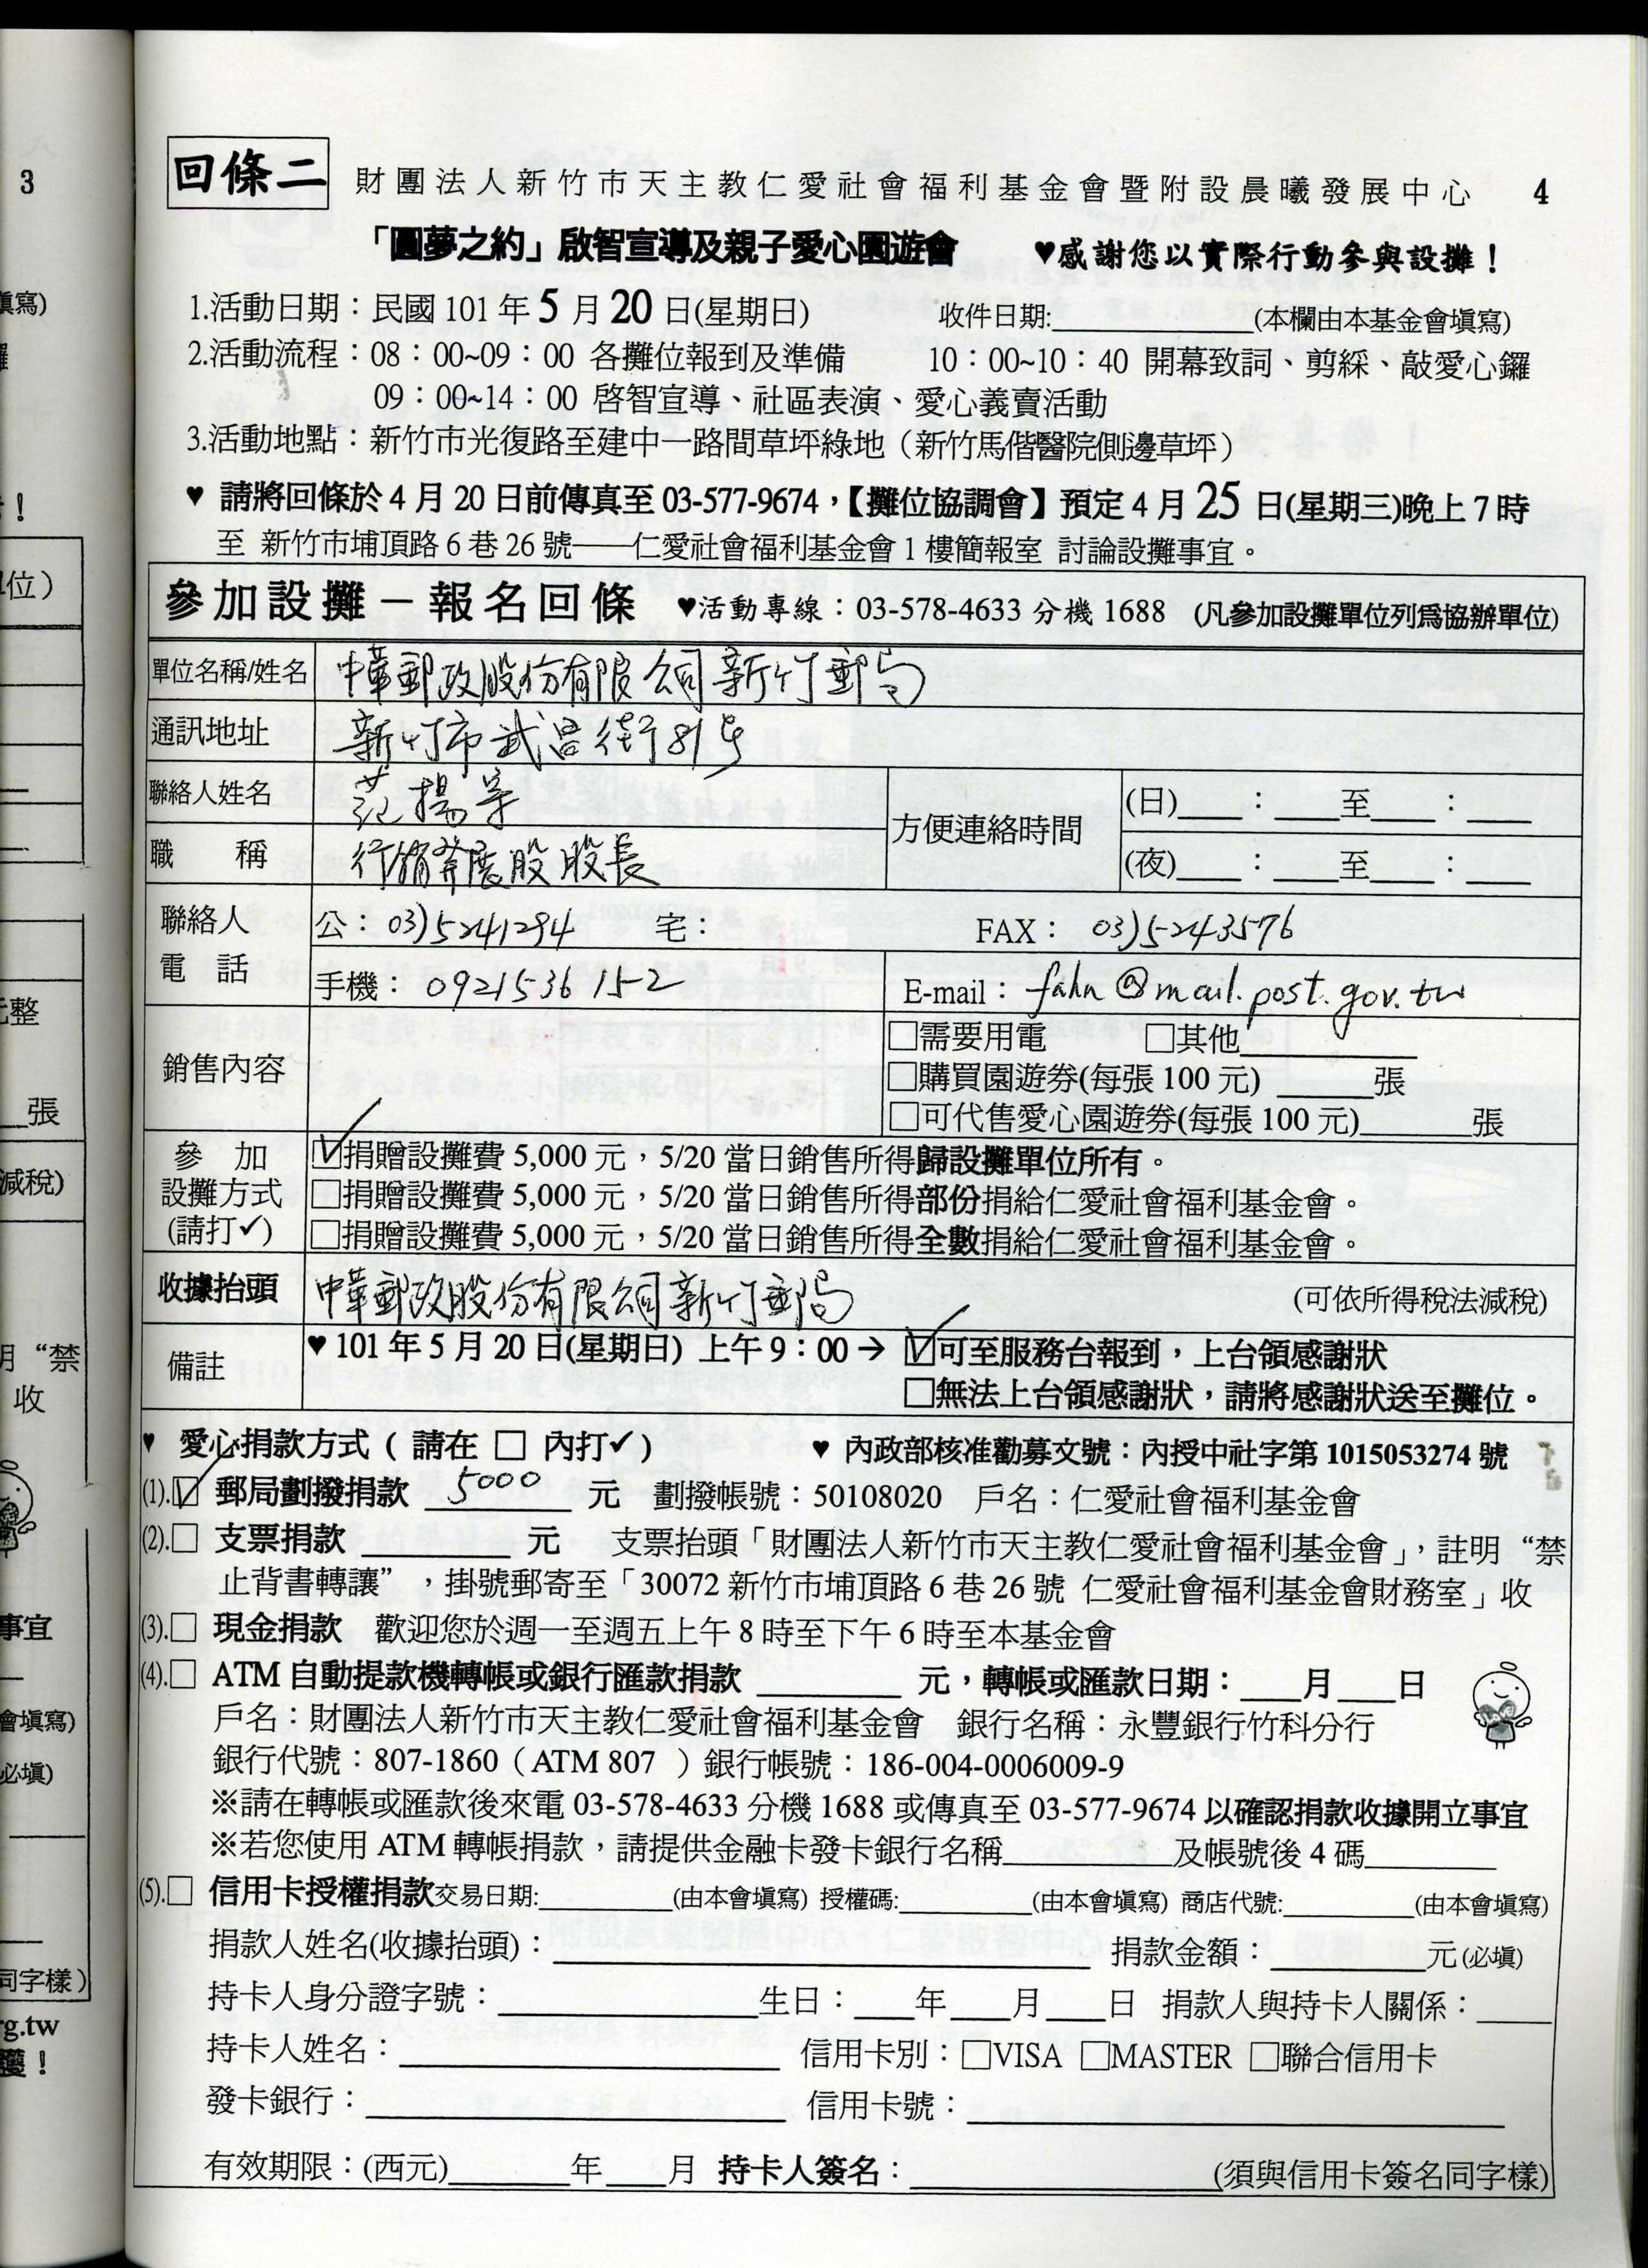 3
填寫)
!
位)
元整
張
減稅)
明“禁
收
事宜
會填寫)
必填)
同字樣)
rg.tw
回條二 財團法人新竹市天主教仁愛社會福利基金會暨附設晨曦發展中心 4
「圓夢之約」啟智宣導及親子愛心園遊會 ♥感謝您以實際行動參與設攤！
1.活動日期：民國 101 年 5 月 20 日(星期日) 收件日期:__________(本欄由本基金會填寫)
2.活動流程：08：00~09：00 各攤位報到及準備 10：00~10：40 開幕致詞、剪綵、敲愛心鑼
09：00~14：00 啓智宣導、社區表演、愛心義賣活動
3.活動地點：新竹市光復路至建中一路間草坪綠地（新竹馬偕醫院側邊草坪）
♥ 請將回條於 4 月 20 日前傳真至 03-577-9674，【攤位協調會】預定 4 月 25 日(星期三)晚上 7 時
至 新竹市埔頂路 6 巷 26 號——仁愛社會福利基金會 1 樓簡報室 討論設攤事宜。
參加設攤－報名回條 ♥活動專線：03-578-4633 分機 1688 (凡參加設攤單位列爲協辦單位)
單位名稱/姓名 中華郵政股份有限公司新竹郵局
通訊地址 新竹市武昌街81号
聯絡人姓名 范揚
職 稱 行銷發展股股長
方便連絡時間 (日)____：____至____：____
(夜)____：____至____：____
聯絡人電話 公：03)5241294 宅： FAX： 03)5243576
手機： 0921536152 E-mail： fahn@mail.post.gov.tw
銷售內容 □需要用電 □其他__________
□購買園遊券(每張 100 元) ______張
□可代售愛心園遊券(每張 100 元)_______張
參 加 ☑捐贈設攤費 5,000 元，5/20 當日銷售所得歸設攤單位所有。
設攤方式 □捐贈設攤費 5,000 元，5/20 當日銷售所得部份捐給仁愛社會福利基金會。
(請打✓) □捐贈設攤費 5,000 元，5/20 當日銷售所得全數捐給仁愛社會福利基金會。
收據抬頭 中華郵政股份有限公司新竹郵局 (可依所得稅法減稅)
備註 ♥ 101 年 5 月 20 日(星期日) 上午 9：00→ ☑可至服務台報到，上台領感謝狀
□無法上台領感謝狀，請將感謝狀送至攤位。
♥ 愛心捐款方式 ( 請在 □ 內打✓) ♥ 內政部核准勸募文號：內授中社字第 1015053274 號
(1).☑ 郵局劃撥捐款 5000 元 劃撥帳號：50108020 戶名：仁愛社會福利基金會
(2).□ 支票捐款 ________ 元 支票抬頭「財團法人新竹市天主教仁愛社會福利基金會」，註明 “禁
止背書轉讓” ，掛號郵寄至「30072 新竹市埔頂路 6 巷 26 號 仁愛社會福利基金會財務室」收
(3).□ 現金捐款 歡迎您於週一至週五上午 8 時至下午 6 時至本基金會
(4).□ ATM 自動提款機轉帳或銀行匯款捐款 ________ 元，轉帳或匯款日期：___月___日
戶名：財團法人新竹市天主教仁愛社會福利基金會 銀行名稱：永豐銀行竹科分行
銀行代號：807-1860（ATM 807 ）銀行帳號：186-004-0006009-9
※請在轉帳或匯款後來電 03-578-4633 分機 1688 或傳真至 03-577-9674 以確認捐款收據開立事宜
※若您使用 ATM 轉帳捐款，請提供金融卡發卡銀行名稱_________及帳號後 4 碼_______
(5).□ 信用卡授權捐款交易日期:_______(由本會填寫) 授權碼:_______(由本會填寫) 商店代號:_______(由本會填寫)
捐款人姓名(收據抬頭)：__________________ 捐款金額：________元(必填)
持卡人身分證字號：______________生日：___年___月___日 捐款人與持卡人關係：____
持卡人姓名：____________________ 信用卡別：□VISA □MASTER □聯合信用卡
發卡銀行：______________________ 信用卡號：____________________________
有效期限：(西元)______年___月 持卡人簽名：________________(須與信用卡簽名同字樣)